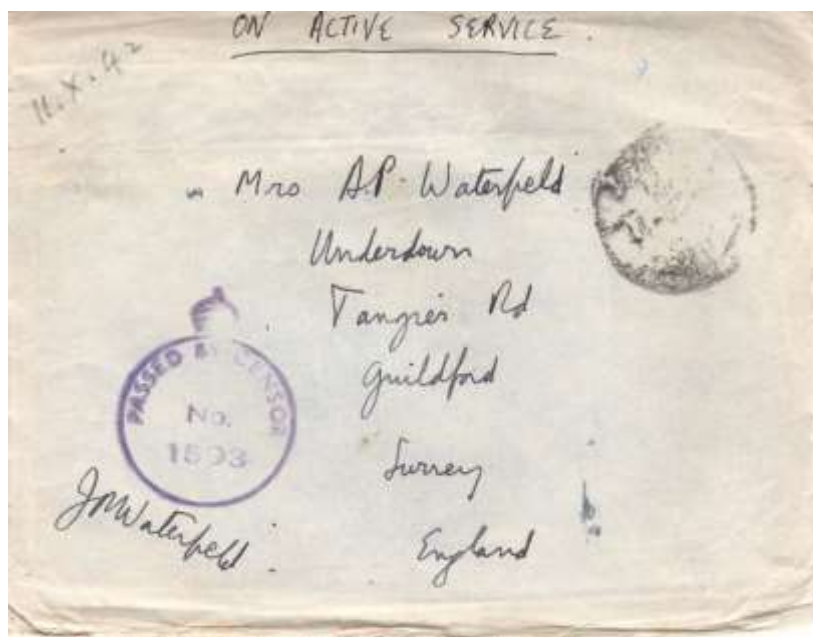 ON ACTIVE SERVICE.
11.X.42
Mrs A.P. Waterfield
Underdown
Tangier Rd
Guildford
Surrey
England
PASSED BY CENSOR
No.
1593
JMWaterfield.